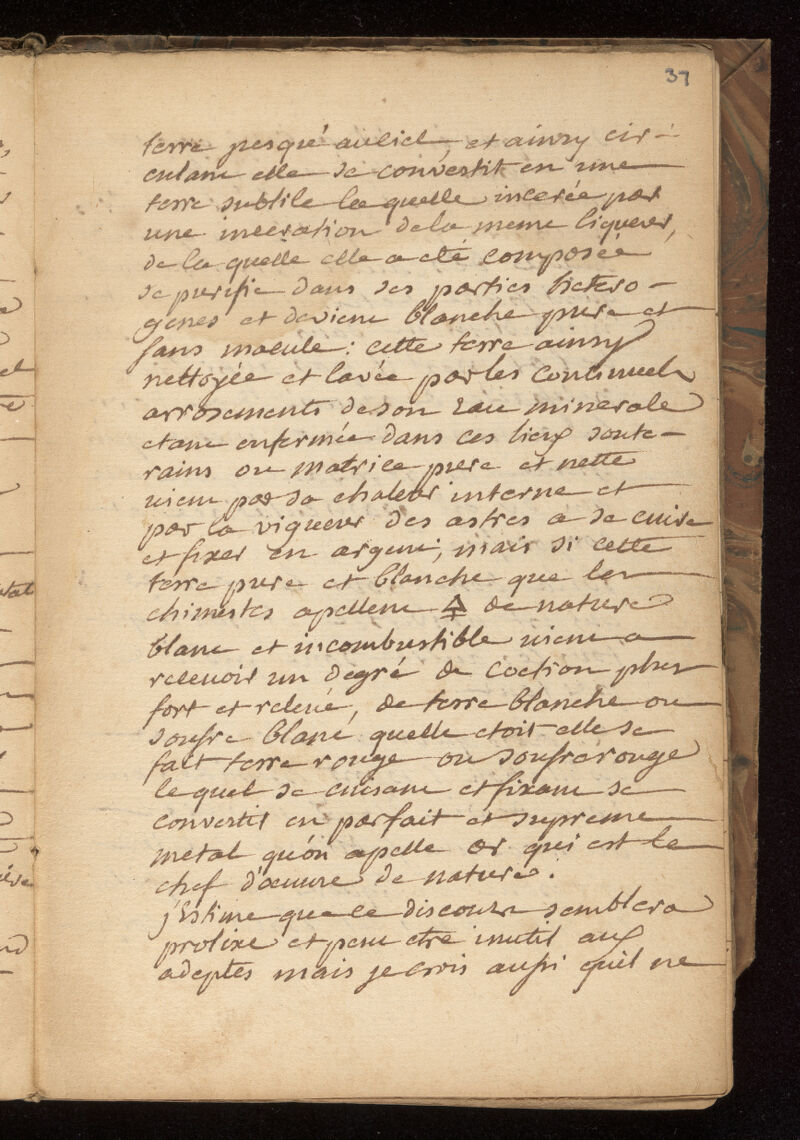 37
terre jusqué au ciel, et ainsy cir-
culant elle se convertit en une
terre subtile la quelle incerée par
une inceration de la meme liqueur,
de la quelle elle a eté composée
se purifie dans ses parties hetero-
genes et devient blanche pure et
sans macule: cette terre ainsy
nettoyée et lavée par les continuels
arrosements de son eau minerale
etant enfermée dans ces lieux soute-
rains ou matrice pure et nette
vient par sa chaleur interne et
par la vigueur des astres a se cuire
et fixer en argent, mais si cette
terre pure et blanche que les
chimistes apellent 🜍 de nature
blanc et incombustible vient a
recevoir un degré de coction plus
fort et relevé, de terre blanche ou
soufre blanc quelle etoit elle se
fait terre rouge ou soufre rouge
le quel se cuisant et fixant se
convertit en parfait et supreme
metal qu'on apelle or qui est le
chef d'œuvre de nature.
j'Estime que ce discours semblera
prolixe et peut etre inutil aux
adeptes mais je crois aussi qu'il ne